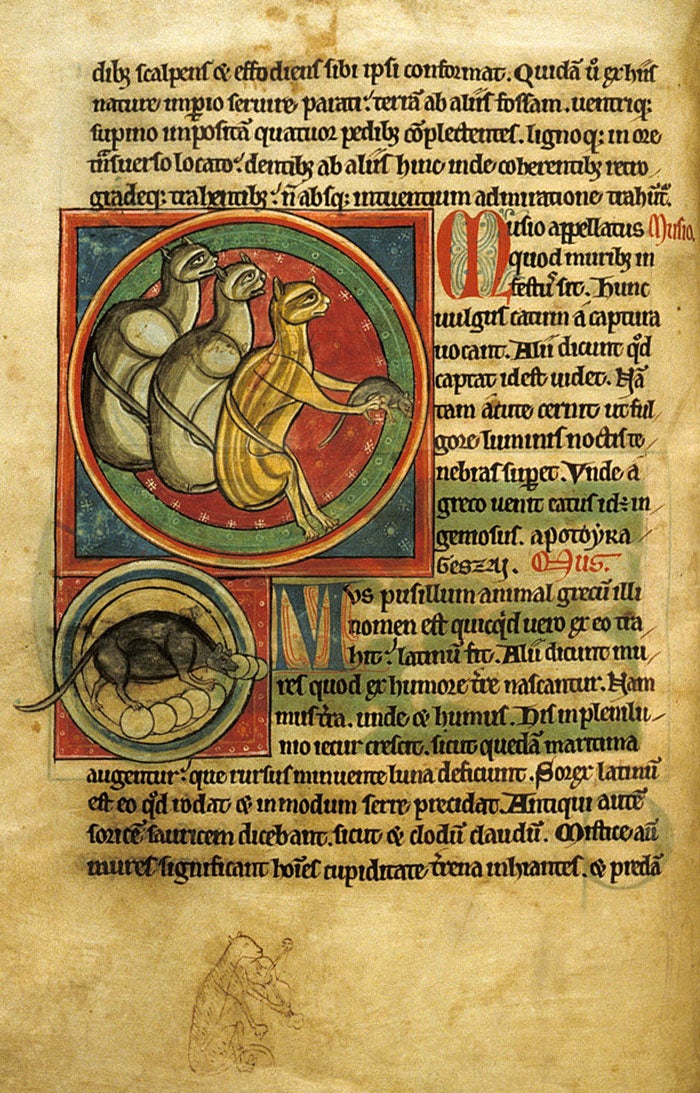 dibꝫ scalpens & effodiens sibi ipsi conformat. Quidā ů ex hiis
nature impio seruire parati. terrā ab aliis fossam. uentriq:
supino impositā quatuor pedibꝫ cōplectentes. lignoq: in ore
tͥnsuerso locato. dentibꝫ ab aliis hinc inde coherentibꝫ retro
gradeq: trahentibꝫ. n̄ absq: intuentium admiratione trahūt̉.
Musio appellatus Musio.
quod muribꝫ in
festuſ sit. Hunc
uulgus catum a captura
uocant. Alii dicunt qd̓
captat id est uidet. Nā
tam acute cernit ut ful
gore luminis noctis te
nebras supet. Vnde a
greco uenit catus id: in
gemosus. apotoyka
geszaj. Mus.
Mvs pusillum animal grecū illi
nomen est quicqd uero ex eo tra
hit. latinū fit. Alii dicunt mu
res quod ex humore tre nascantur. Nam
mus tra. unde & humus. His in plenilu
nio iecur crescit. sicut quedā maritima
augentur. que rursus minuente luna deficiunt. Sorex latinū
est eo qd rodat & in modum serre precidat. Antiqui autē
soricē sauricem dicebant. sicut & clodū claudū. Mistice aū
mures significant hoīes cupiditate trena inhiantes. & predā